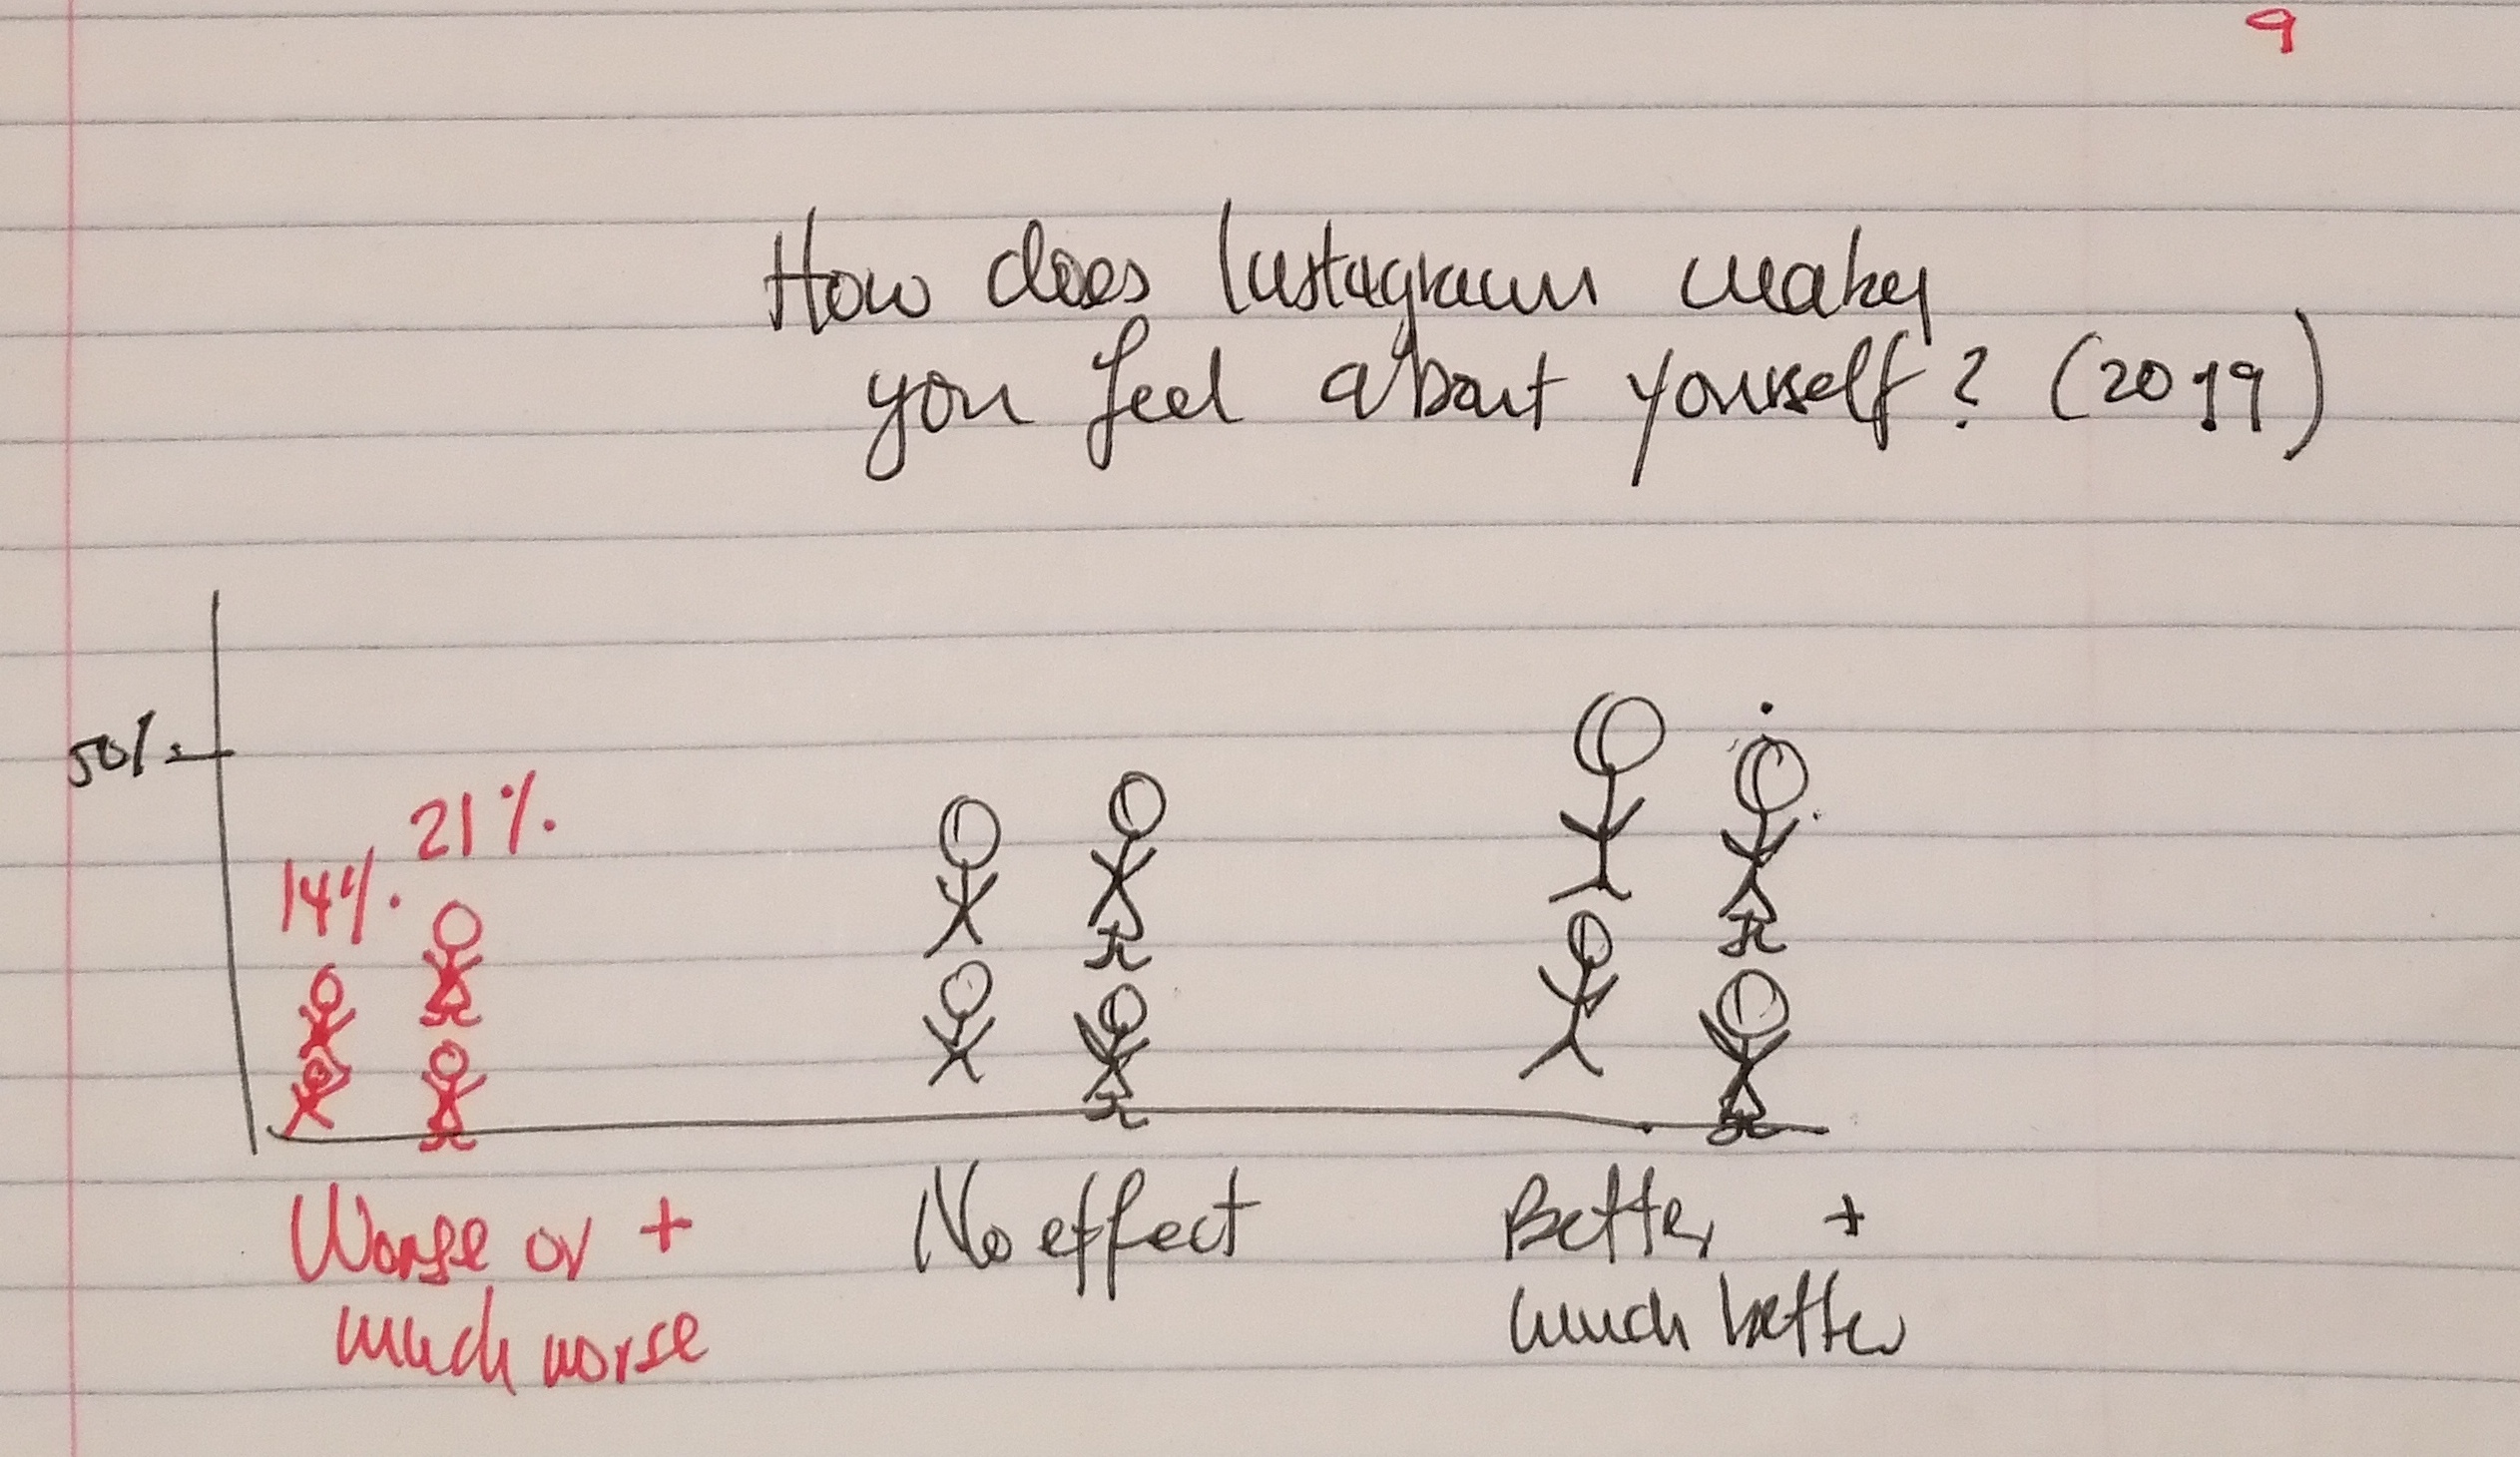 9
How does Instagram makes
you feel about yourself? (2019)
50%
21%.
14%.
Worse or +
much worse
No effect
Better +
much better